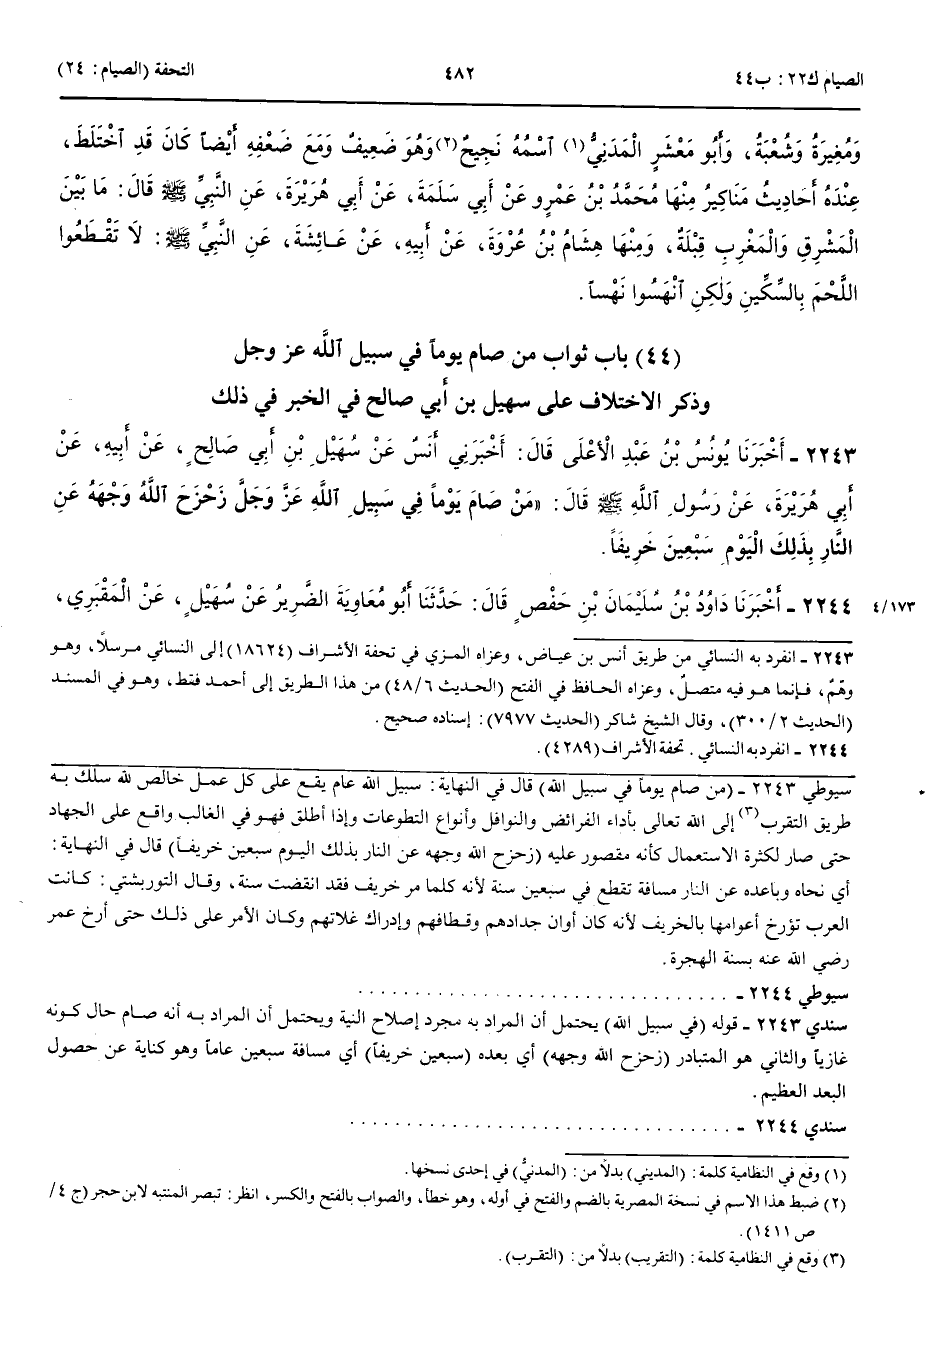 الصيام ك٢٢: ب٤٤
٤٨٢
التحفة (الصيام: ٢٤)
وَمُغِيرَةُ وَشُعْبَةُ، وَأَبُو مَعْشَرٍ الْمَدَنِيُّ(١) ٱسْمُهُ نَجِيحٌ(٢)وَهُوَ ضَعِيفٌ وَمَعَ ضَعْفِهِ أَيْضاً كَانَ قَدِ ٱخْتَلَطَ،
عِنْدَهُ أَحَادِيثُ مَنَاكِيرُ مِنْهَا مُحَمَّدُ بْنُ عَمْرٍو عَنْ أَبِي سَلَمَةَ، عَنْ أَبِي هُرَيْرَةَ، عَنِ النَّبِيِّ ﷺ قَالَ: مَا بَيْنَ
الْمَشْرِقِ وَالْمَغْرِبِ قِبْلَةٌ، وَمِنْهَا هِشَامُ بْنُ عُرْوَةَ، عَنْ أَبِيهِ، عَنْ عَائِشَةَ، عَنِ النَّبِيِّ ﷺ: لَا تَقْطَعُوا
اللَّحْمَ بِالسِّكِّينِ وَلٰكِنِ ٱنْهَسُوا نَهْساً.
(٤٤) باب ثواب من صام يوماً في سبيل ٱللَّه عز وجل
وذكر الاختلاف على سهيل بن أبي صالح في الخبر في ذلك
٢٢٤٣ ـ أَخْبَرَنَا يُونُسُ بْنُ عَبْدِ الْأَعْلَى قَالَ: أَخْبَرَنِي أَنَسٌ عَنْ سُهَيْلِ بْنِ أَبِي صَالِحٍ، عَنْ أَبِيهِ، عَنْ
أَبِي هُرَيْرَةَ، عَنْ رَسُولِ ٱللَّهِ ﷺ قَالَ: «مَنْ صَامَ يَوْماً فِي سَبِيلِ ٱللَّهِ عَزَّ وَجَلَّ زَحْزَحَ ٱللَّهُ وَجْهَهُ عَنِ
النَّارِ بِذَلِكَ الْيَوْمِ سَبْعِينَ خَرِيفَاً.
٤/١٧٣ ٢٢٤٤ ـ أَخْبَرَنَا دَاوُدُ بْنُ سُلَيْمَانَ بْنِ حَفْصٍ قَالَ: حَدَّثَنَا أَبُو مُعَاوِيَةَ الضَّرِيرُ عَنْ سُهَيْلٍ، عَنْ الْمَقْبَرِي،
٢٢٤٣ ـ انفرد به النسائي من طريق أنس بن عياض، وعزاه المزي في تحفة الأشراف (١٨٦٢٤) إلى النسائي مرسلاً، وهو
وهمٌ، فإنما هو فيه متصلٌ، وعزاه الحافظ في الفتح (الحديث ٤٨/٦) من هذا الطريق إلى أحمد فقط، وهو في المسند
(الحديث ٣٠٠/٢)، وقال الشيخ شاكر (الحديث ٧٩٧٧): إسناده صحيح.
٢٢٤٤ ـ انفرد به النسائي. تحفة الأشراف (٤٢٨٩).
سيوطي ٢٢٤٣ ـ (من صام يوماً في سبيل الله) قال في النهاية: سبيل الله عام يقع على كل عمل خالص لله سلك به
طريق التقرب(٣) إلى الله تعالى بأداء الفرائض والنوافل وأنواع التطوعات وإذا أطلق فهو في الغالب واقع على الجهاد
حتى صار لكثرة الاستعمال كأنه مقصور عليه (زحزح الله وجهه عن النار بذلك اليوم سبعين خريفاً) قال في النهاية:
أي نحاه وباعده عن النار مسافة تقطع في سبعين سنة لأنه كلما مر خريف فقد انقضت سنة، وقال التوربشتي: كانت
العرب تؤرخ أعوامها بالخريف لأنه كان أوان جدادهم وقطافهم وإدراك غلاتهم وكان الأمر على ذلك حتى أرخ عمر
رضي الله عنه بسنة الهجرة.
سيوطي ٢٢٤٤ ـ ................................
سندي ٢٢٤٣ ـ قوله (في سبيل الله) يحتمل أن المراد به مجرد إصلاح النية ويحتمل أن المراد به أنه صام حال كونه
غازياً والثاني هو المتبادر (زحزح الله وجهه) أي بعده (سبعين خريفاً) أي مسافة سبعين عاماً وهو كناية عن حصول
البعد العظيم.
سندي ٢٢٤٤ ـ ................................
(١) وقع في النظامية كلمة: (المديني) بدلاً من: (المدنيُّ) في إحدى نسخها.
(٢) ضبط هذا الاسم في نسخة المصرية بالضم والفتح في أوله، وهو خطأ، والصواب بالفتح والكسر، انظر: تبصر المنتبه لابن حجر (ج ٤/
ص ١٤١١).
(٣) وقع في النظامية كلمة: (التقريب) بدلاً من: (التقرب).